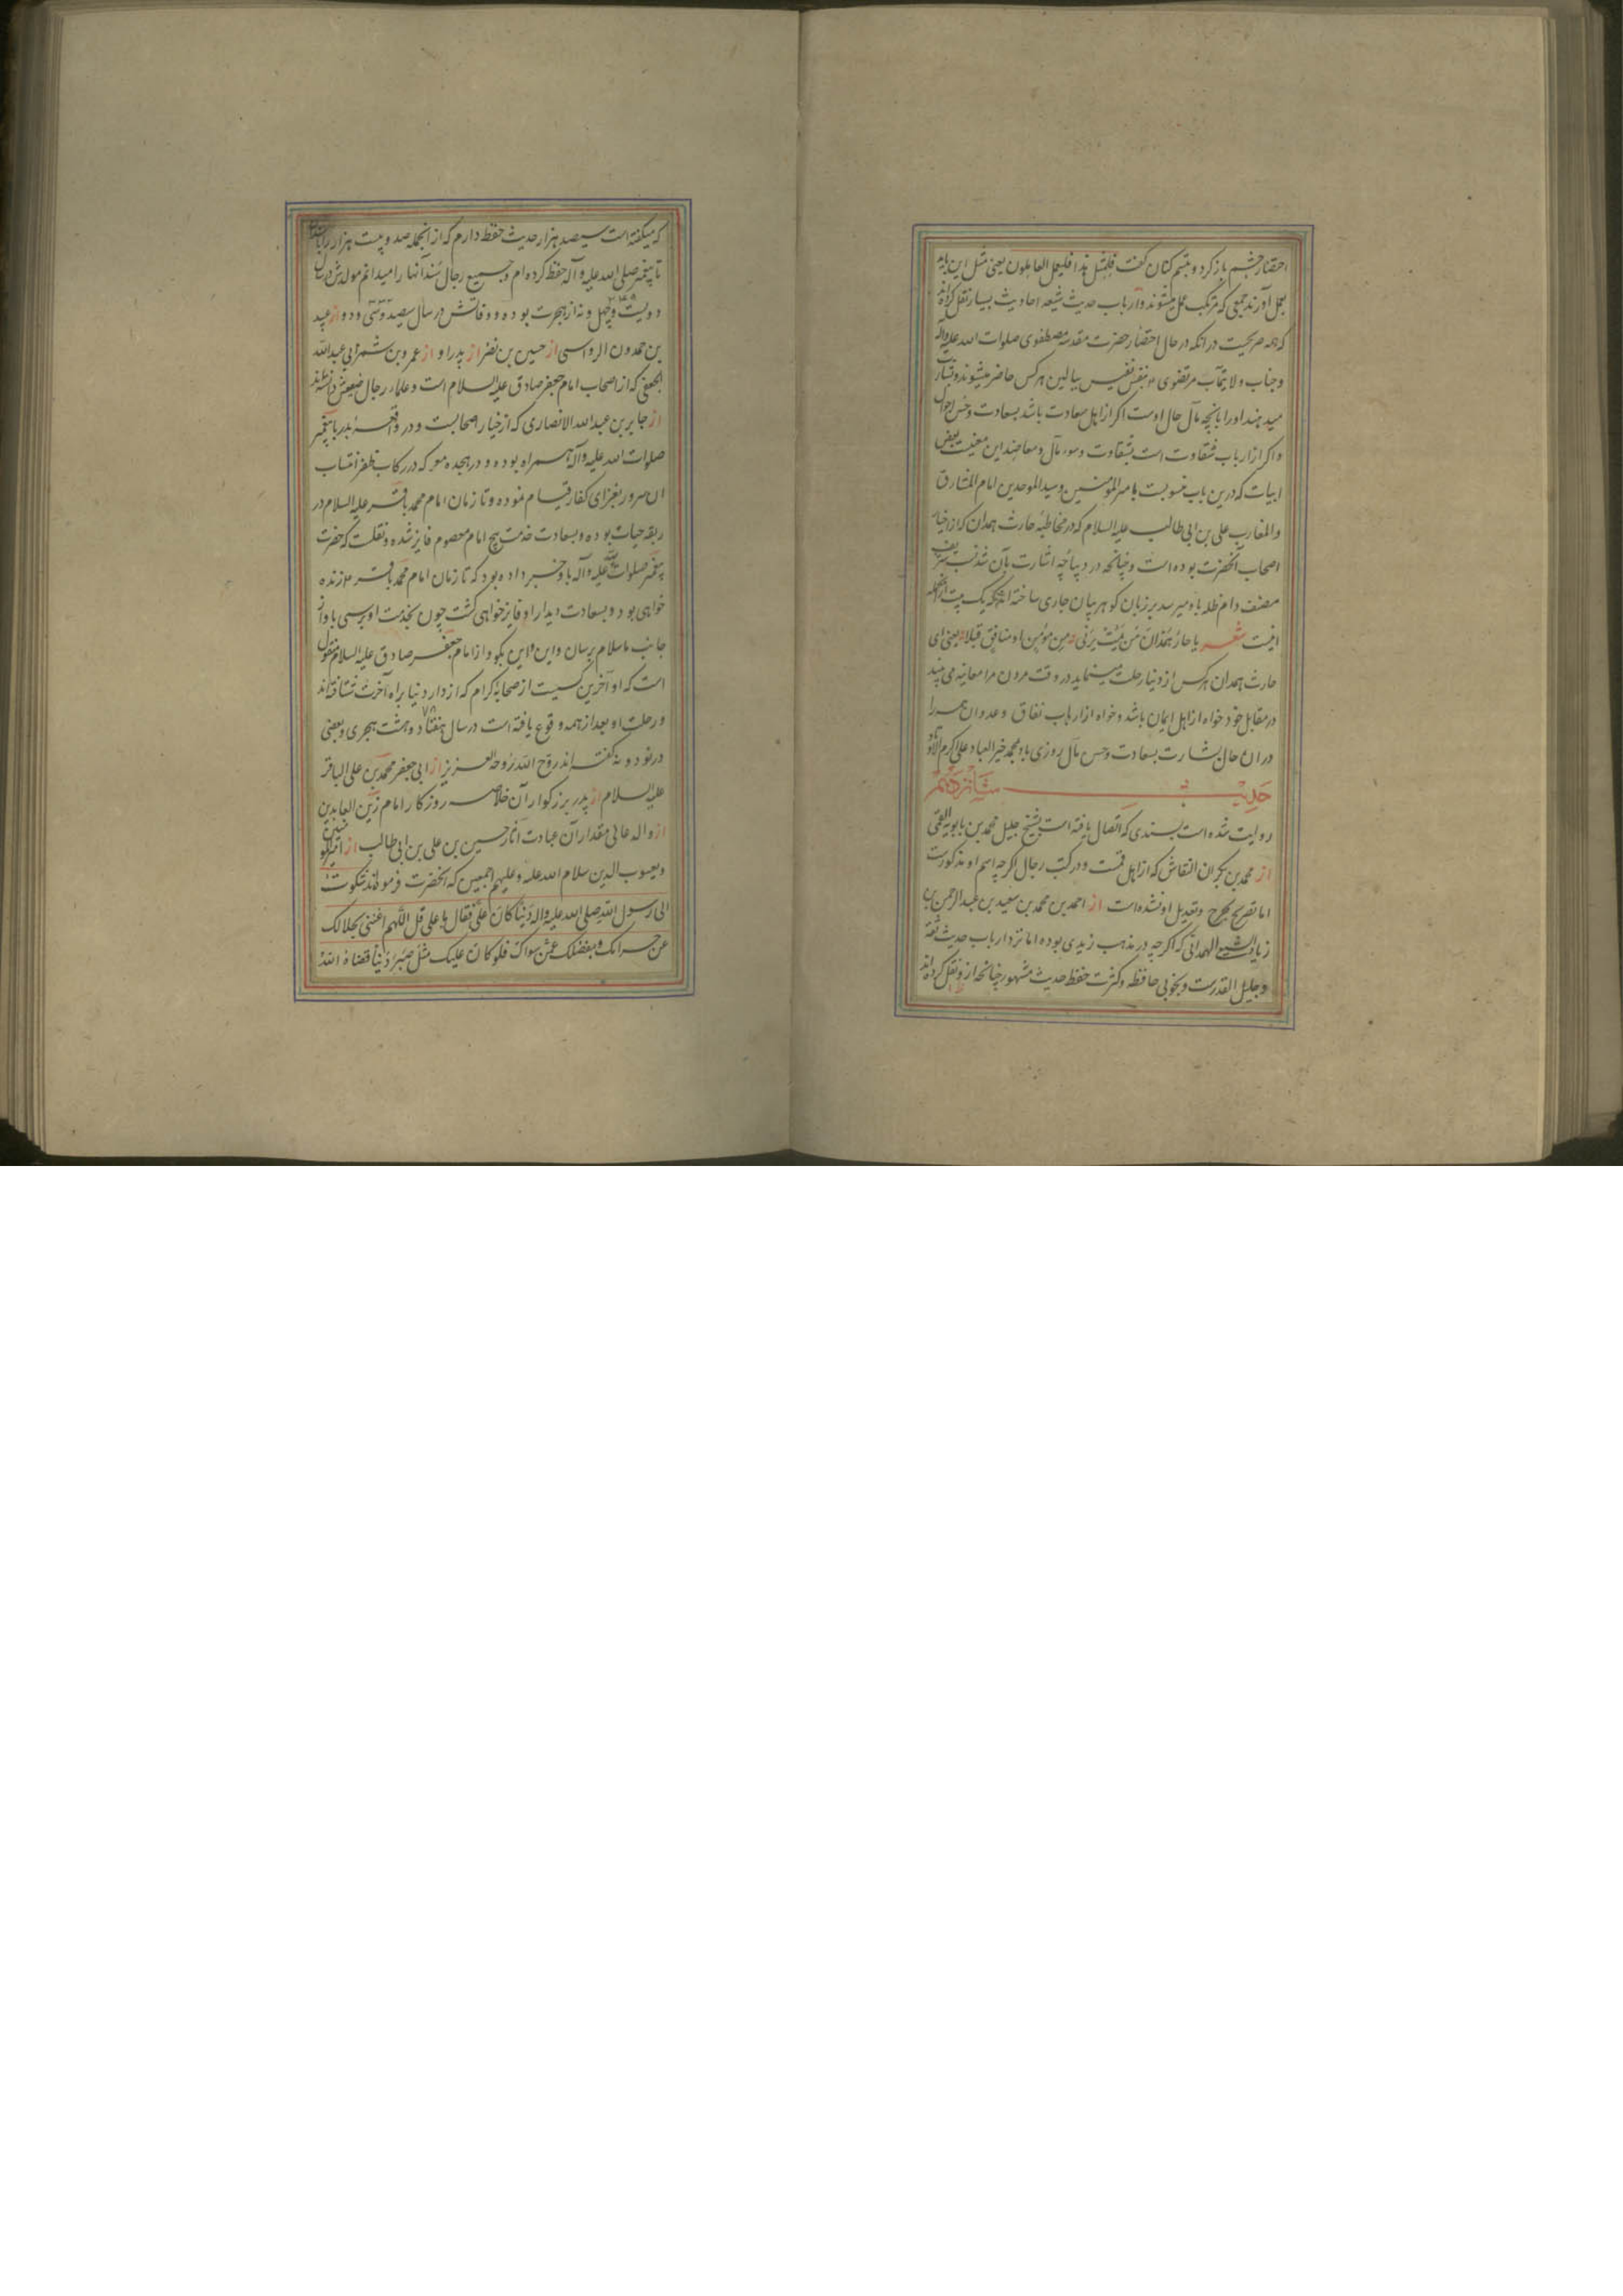 احتضار چشم باز کرد و تبسم کنان گفت فلمثل هذا فلیعمل العاملون یعنی مثل این باید
بعمل آورند جمعی که مرتکب عمل میشوند و ارباب حدیث شیعه احادیث بسیار نقل کرده‌اند
که همه صریحست در انکه در حال احتضار حضرت مقدسه مصطفوی صلوات الله علیه وآله
و جناب ولایتمآب مرتضوی بنفس نفیس ببالین هر کس حاضر میشوند و بشارت
میدهند او را بانچه مآل حال اوست اکر از اهل سعادت باشد بسعادت وحسن احوال
واکر از ارباب شقاوت است بشقاوت وسوء مآل ومعاضد این معنیست بعض
ابیات که درین باب منسوبست بامیر المؤمنین وسید الموحدین امام المشارق
والمغارب علی بن ابی طالب علیه السلام که در مخاطبهٔ حارث همدان که از اخیار
اصحاب آنحضرت بوده است وچنانچه در دیباچه اشارت بآن شد نسب شریف
مصنف دام ظله باو میرسد بر زبان کوهر بیان جاری ساخته‌اند که یک بیت از انجمله
اینست شعر یا حار همدان من یمت یرنی من مؤمن او منافق قبلا یعنی ای
حارث همدان هر کس از دنیا رحلت مینماید در وقت مردن مرا معاینه می بیند
در مقابل خود خواه از اهل ایمان باشد وخواه از ارباب نفاق وعدوان همه را
دران حال بشارت بسعادت وحسن مآل روزی باد بمحمد خیر العباد علی اکرم الاولاد
حدیث شانزدهم
روایت شده است بسندی که اتصال یافته است بشیخ جلیل محمد بن بابویه القمی
از محمد بن بکران النقاش که از اهل قمست ودر کتب رجال اکرچه اسم او مذکورست
اما تصریح بجرح وتعدیل او نشده است از احمد بن محمد بن سعید بن عبد الرحمن بن
زیاد السبیعی الهمدانی که اکرچه در مذهب زیدی بوده اما نزد ارباب حدیث ثقه
وجلیل القدرست وبخوبی حافظه وکثرت حفظ حدیث مشهور چنانچه از و نقل کرده‌اند
که میکفته است سیصد هزار حدیث حفظ دارم که از انجمله صد وبیست هزار را باسناد
تا پیغمبر صلی الله علیه وآله حفظ کرده‌ام وجمیع رجال سند آنها را میدانم مولدش در سال
دویست وچهل ونه از هجرت بوده ووفاتش در سال سیصد وسی ودو از عبید
بن حمدون الرواسی از حسین بن نضر از پدر او از عمرو بن شمر ابی عبدالله
الجعفی که از اصحاب امام جعفر صادق علیه السلام است وعلماء رجال ضعیفش دانسته‌اند
از جابر بن عبدالله الانصاری که از خیار اصحابست ودر واقعهٔ بدر با پیغمبر
صلوات الله علیه وآله همراه بوده ودر هجده معرکه در رکاب ظفر انتساب
ان سرور بغزای کفار قیام نموده وتا زمان امام محمد باقر علیه السلام در
ربقه حیات بوده وبسعادت خدمت پنج امام معصوم فایز شده ونقلست که حضرت
پیغمبر صلوات الله علیه وآله باو خبر داده بود که تا زمان امام محمد باقر ع زنده
خواهی بود وبسعادت دیدار او فایز خواهی کشت چون بخدمت او برسی باو از
جانب ما سلام برسان واین واین بکو واز امام جعفر صادق علیه السلام منقول
است که او آخرین کسیست از صحابهٔ کرام که از دار دنیا براه آخرت شتافته‌اند
ورحلت او بعد از همه وقوع یافته است در سال هفتاد ۷۸ وهشت هجری وبعضی
در نود ونه کفته‌اند روح الله روحه العزیز از ابی جعفر محمد بن علی الباقر
علیه السلام از پدر بزرکوار آن خلاصهٔ روزکار امام زین العابدین
از والد عالی مقدار آن عبادت آثار حسین بن علی بن ابی طالب از امیر المؤمنین
ویعسوب الدین سلام الله علیه وعلیهم اجمعین که انحضرت فرموده‌اند شکوت
الی رسول الله صلی الله علیه واله دینا کان علی فقال یا علی قل اللهم اغننی بحلالک
عن حرامک وبفضلک عمن سواک فلو کان علیک مثل صبیر دینا قضاه الله